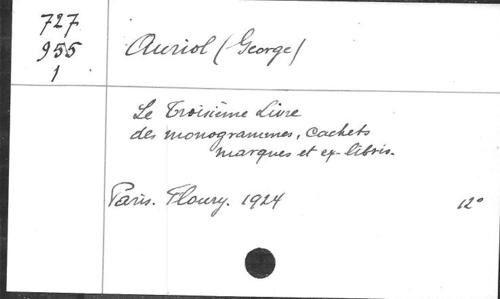 727
955
1
Auriol (George)
Le Troisième Livre
des monogrammes, cachets
marques et ex-libris.
Paris. Floury. 1924 12°